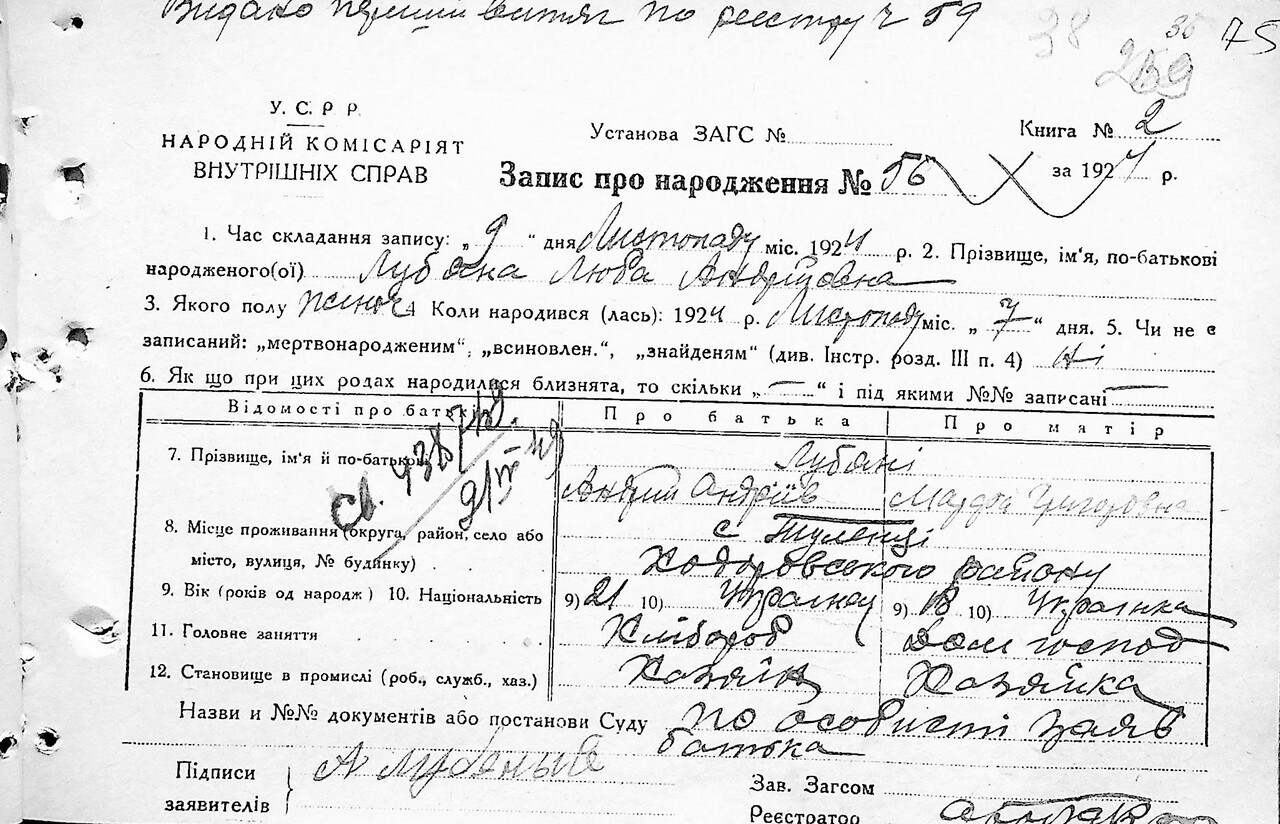 Видано перший витяг по реєстру ч 59
38 35 75
259
У. С. Р Р.
НАРОДНІЙ КОМІСАРІЯТ
ВНУТРІШНІХ СПРАВ
Установа ЗАГС №
Книга № 2
Запис про народження № 56
за 1924 р.
1. Час складання запису: „ 9 “ дня Листопаду міс. 1924 р. 2. Прізвище, ім'я, по-батькові
народженого(ої) Люба Андріївна
3. Якого полу жіноч 4 Коли народився (лась): 1924 р. Листопаду міс. „ 7 “ дня. 5. Чи не є
записаний: „мертвонародженим“, „всиновлен.“, „знайденям“ (див. Інстр. розд. III п. 4) ні
6. Як що при цих родах народилися близнята, то скільки „ — “ і під якими №№ записані —
Відомості про батьків Про батька Про матір
7. Прізвище, ім'я й по-батькові Лубяні
Андрій Андріїв
8. Місце проживання (округа, район, село або с Туленці
місто, вулиця, № будинку) Ходоровського району
9. Вік (років од народж) 10. Національність 9) 21 10) Українец 9) 18 10) Українка
11. Головне заняття Хлібороб Дом господ
12. Становище в промислі (роб., служб., хаз.) Хазяїн Хазяйка
Назви и №№ документів або постанови Суду по особисті заяв
батька
Підписи
заявителів
А Лубяный
Зав. Загсом
Реєстратор